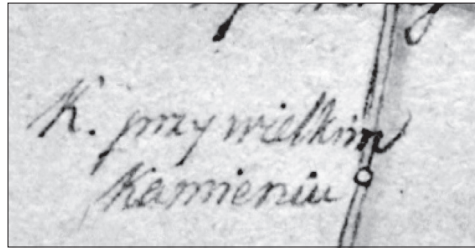 K. przy wielkim
Kamieniu